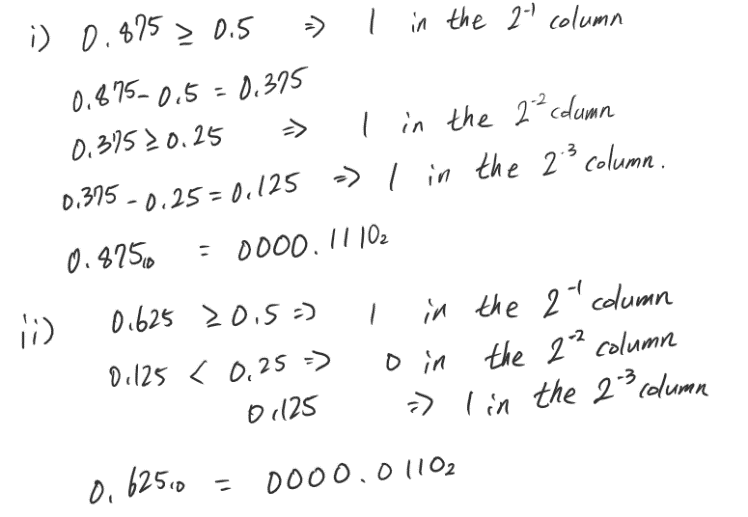 i) 0.875 ≥ 0.5 ⇒ 1 in the 2⁻¹ column
0.875 - 0.5 = 0.375
0.375 ≥ 0.25 ⇒ 1 in the 2⁻² column
0.375 - 0.25 = 0.125 ⇒ 1 in the 2⁻³ column.
0.875₁₀ = 0000.1110₂
ii) 0.625 ≥ 0.5 ⇒ 1 in the 2⁻¹ column
0.125 < 0.25 ⇒ 0 in the 2⁻² column
0.125 ⇒ 1 in the 2⁻³ column
0.625₁₀ = 0000.0110₂